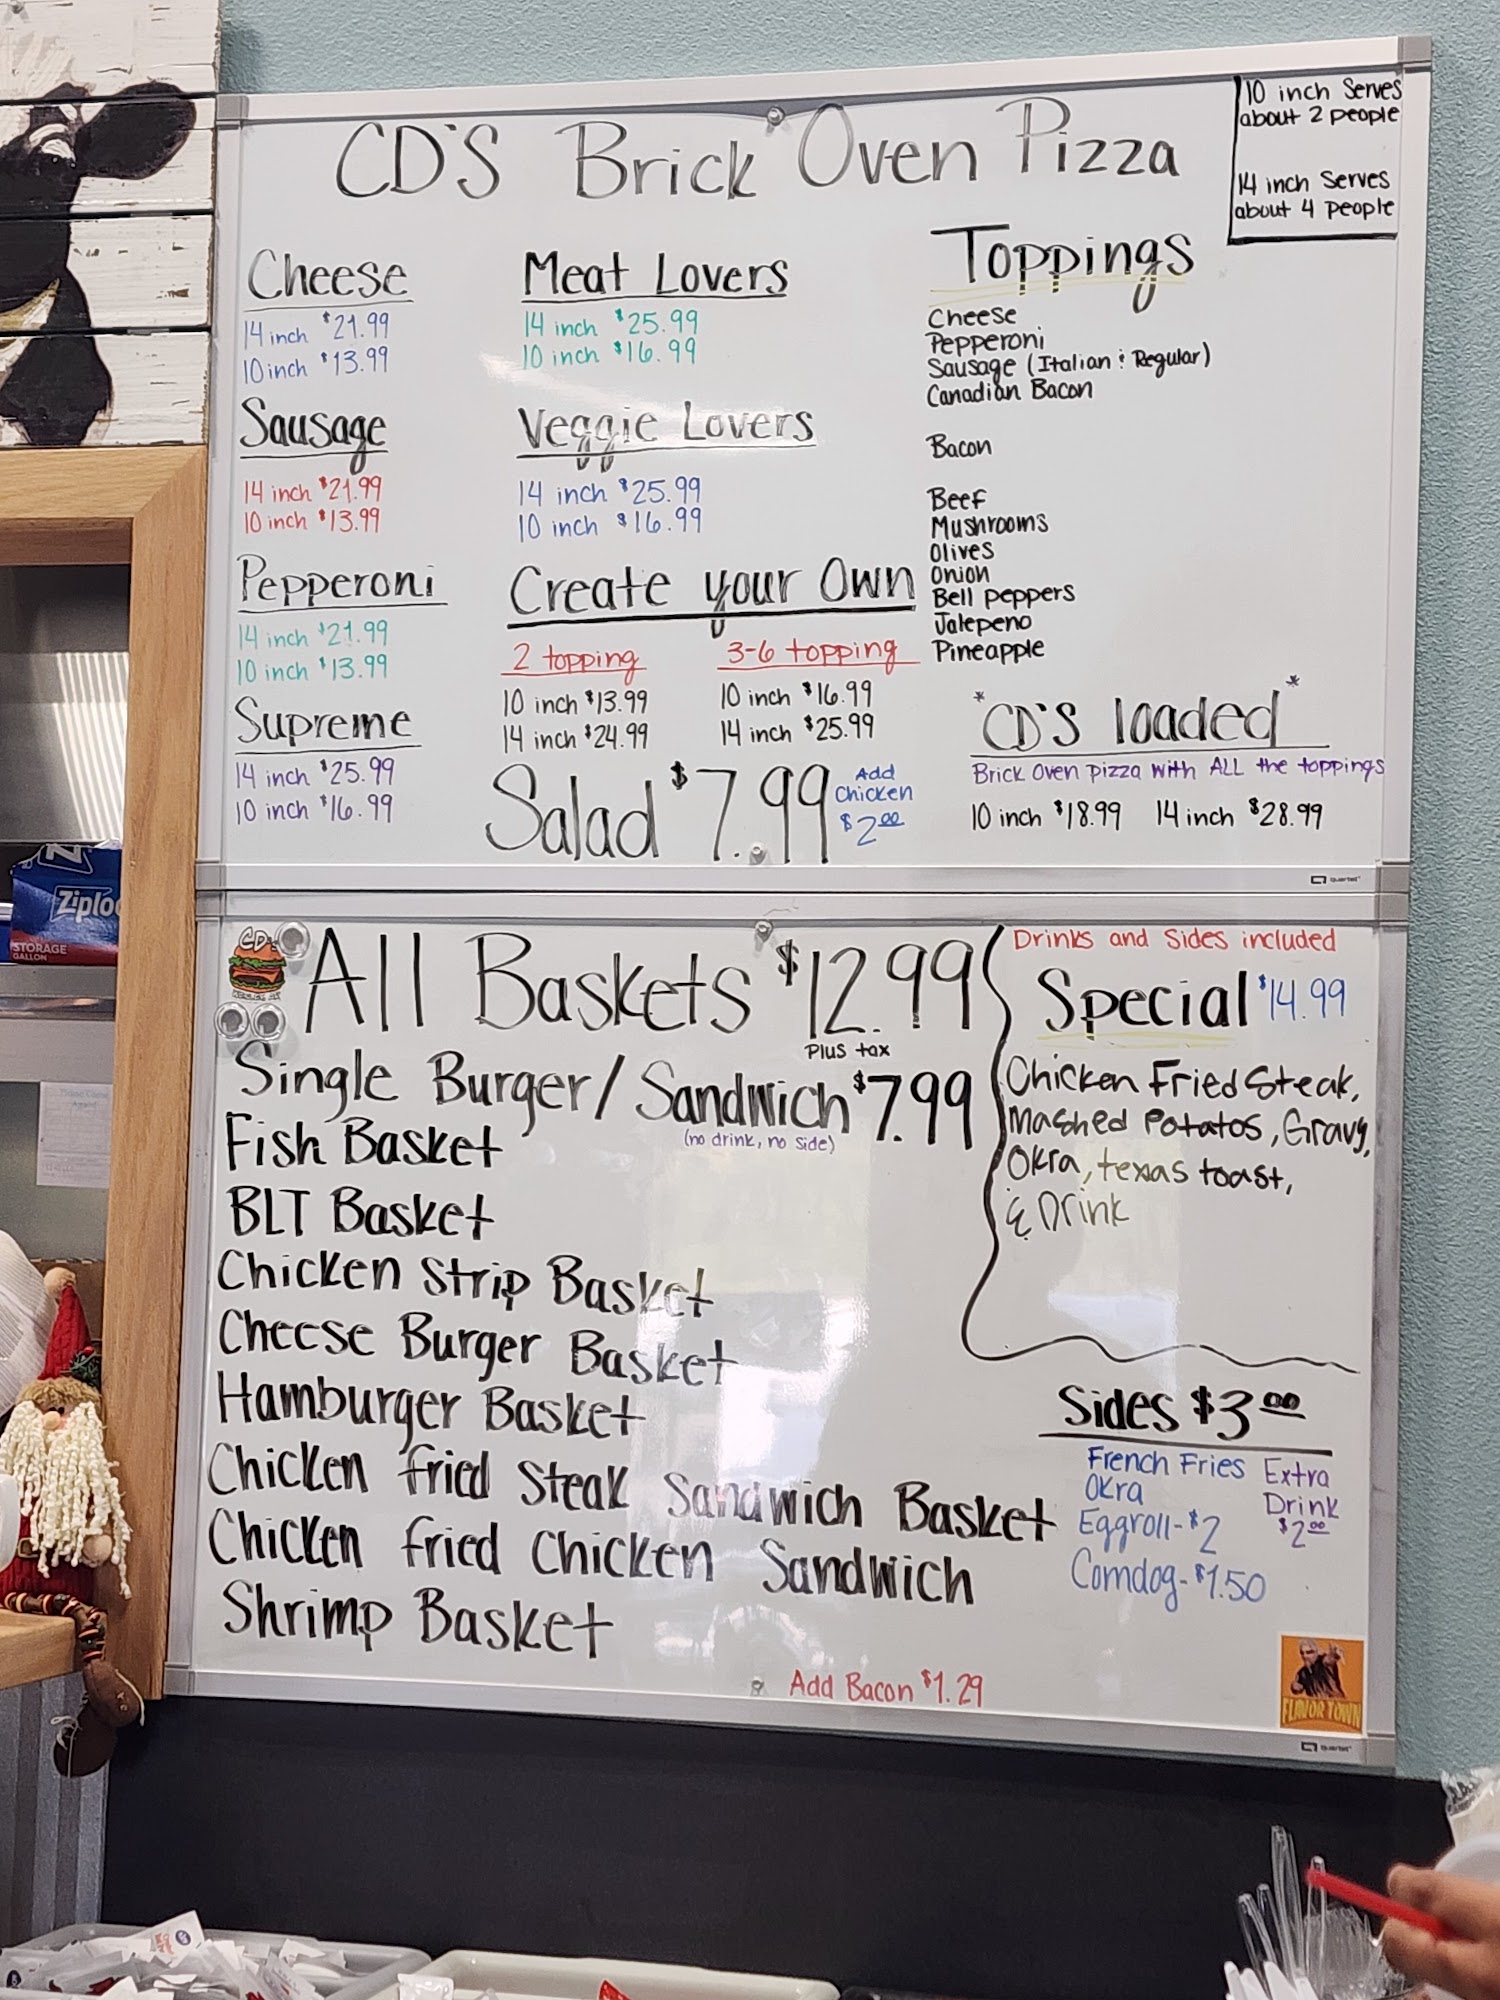 CD'S Brick Oven Pizza
10 inch Serves
about 2 people
14 inch Serves
about 4 people
Cheese
14 inch $21.99
10 inch $13.99
Sausage
14 inch $21.99
10 inch $13.99
Pepperoni
14 inch $21.99
10 inch $13.99
Supreme
14 inch $25.99
10 inch $16.99
Meat Lovers
14 inch $25.99
10 inch $16.99
Veggie Lovers
14 inch $25.99
10 inch $16.99
Create your Own
2 topping
10 inch $13.99
14 inch $24.99
3-6 topping
10 inch $16.99
14 inch $25.99
Salad $7.99
Add
Chicken
$2.00
Toppings
Cheese
Pepperoni
Sausage (Italian & Regular)
Canadian Bacon
Bacon
Beef
Mushrooms
Olives
Onion
Bell peppers
Jalepeno
Pineapple
*CD'S loaded*
Brick Oven pizza with ALL the toppings
10 inch $18.99 14 inch $28.99
Quartet
Ziploc
STORAGE
GALLON
CD's
All Baskets $12.99
Plus tax
Single Burger/Sandwich $7.99
(no drink, no side)
Fish Basket
BLT Basket
Chicken Strip Basket
Cheese Burger Basket
Hamburger Basket
Chicken fried Steak Sandwich Basket
Chicken fried Chicken Sandwich
Shrimp Basket
Add Bacon $1.29
Drinks and Sides included
Special $14.99
Chicken Fried Steak,
Mashed Potatos, Gravy,
Okra, texas toast,
& Drink
Sides $3.00
French Fries
Okra
Eggroll-$2
Corndog-$1.50
Extra
Drink
$2.00
FLAVOR TOWN
Quartet